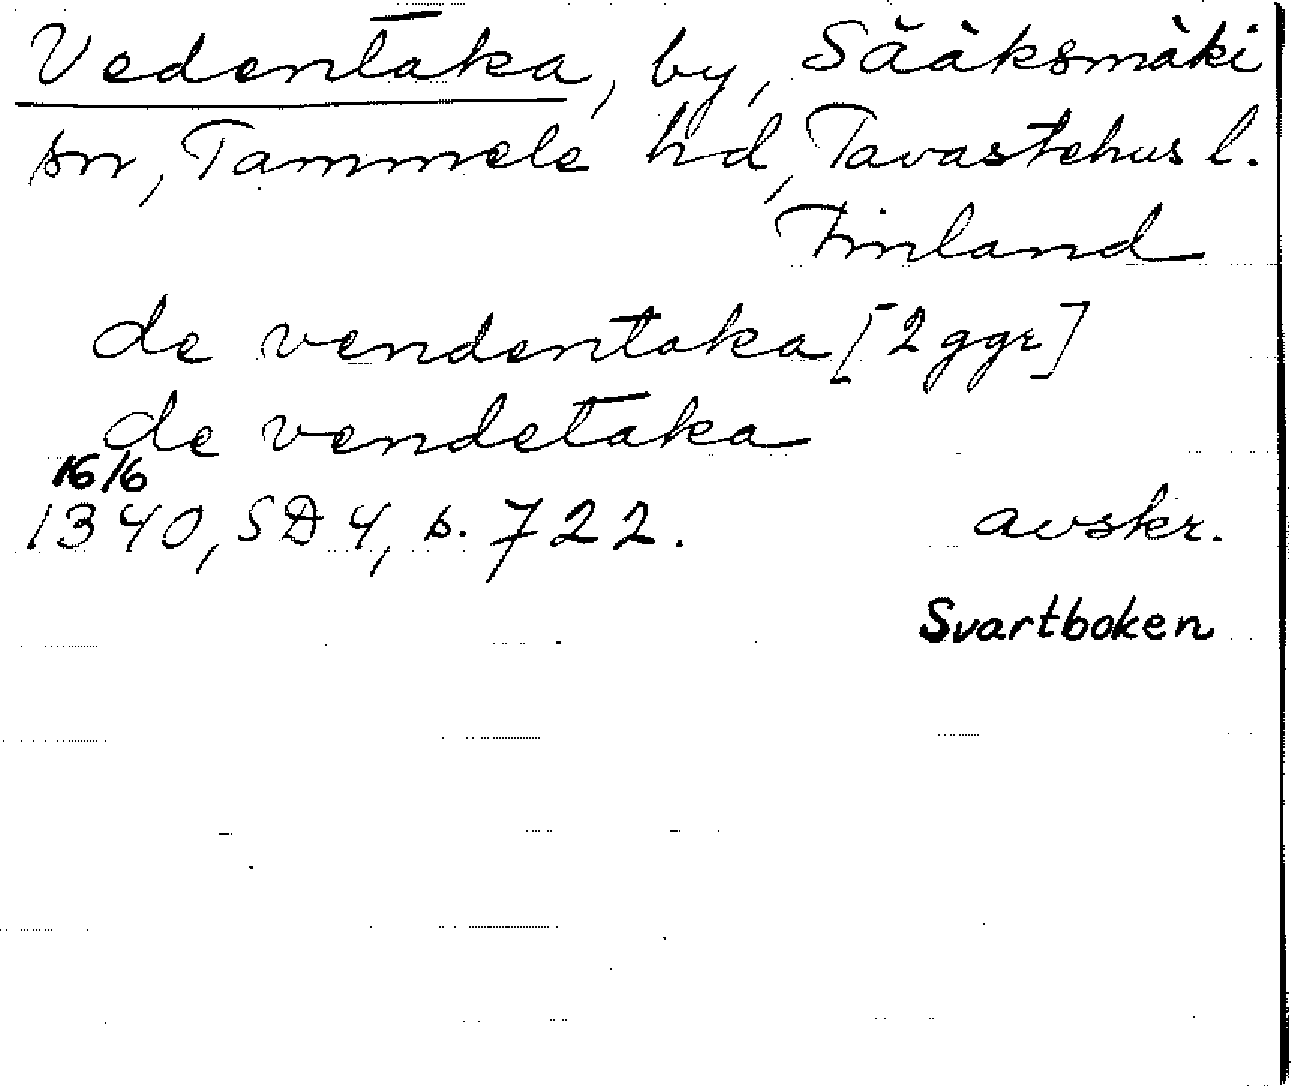 Vedentaka, by, Sääksmäki
sn, Tammela hd, Tavastehus l.
Finland
de vendentaka [2 ggr]
de vendetaka
16/6
1340, SD 4, s. 722. avskr.
Svartboken